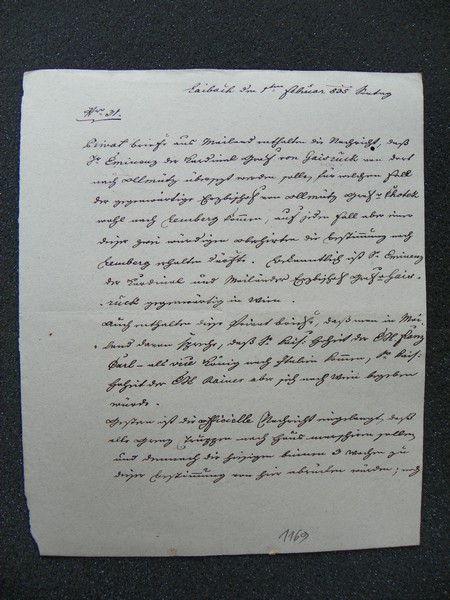 Laibach den 1ten Februar 835 Sontag
Nro 31.
Privat Briefe aus Mailand enthalten die Nachricht, daß
Sr Eminenz der Kardinal Graf von Gaisruck von dort
nach Ollmütz übersezt werden solle, für welchen Fall
der gegenwärtige Erzbischof von Ollmütz Graf Chotek
wohl nach Lemberg kommen, auf jeden Fall aber einer
dieser zwei würdigen die Bestimmung nach
Lemberg erhalten dürfte. Bekanntlich ist Sr Eminenz
der Kardinal und Mailänder Erzbischof Graf Gais-
ruck gegenwärtig in Wien.
Auch enthalten diese Privat Briefe, daß man in Mai-
land davon spreche, daß Sr kais. Hoheit der EH. Franz
Carl als vice König nach Italien kommen, Sr kais.
Hoheit der EH. Rainer aber sich nach Wien begeben
würde.
Gestern ist die officielle Nachricht eingelangt, daß
alle Grenz Truppen nach Haus marschiren sollen,
und demnach die hiesigen binnen 3 Wochen zu
dieser Bestimmung von hier abrücken würden; noch
1169